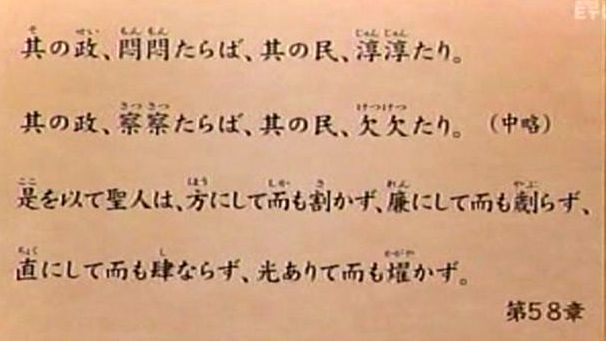 其の政、悶悶たらば、其の民、淳淳たり。
其の政、察察たらば、其の民、欠欠たり。（中略）
是を以て聖人は、方にして而も割かず、廉にして而も劌らず、
直にして而も肆ならず、光ありて而も燿かず。
第58章